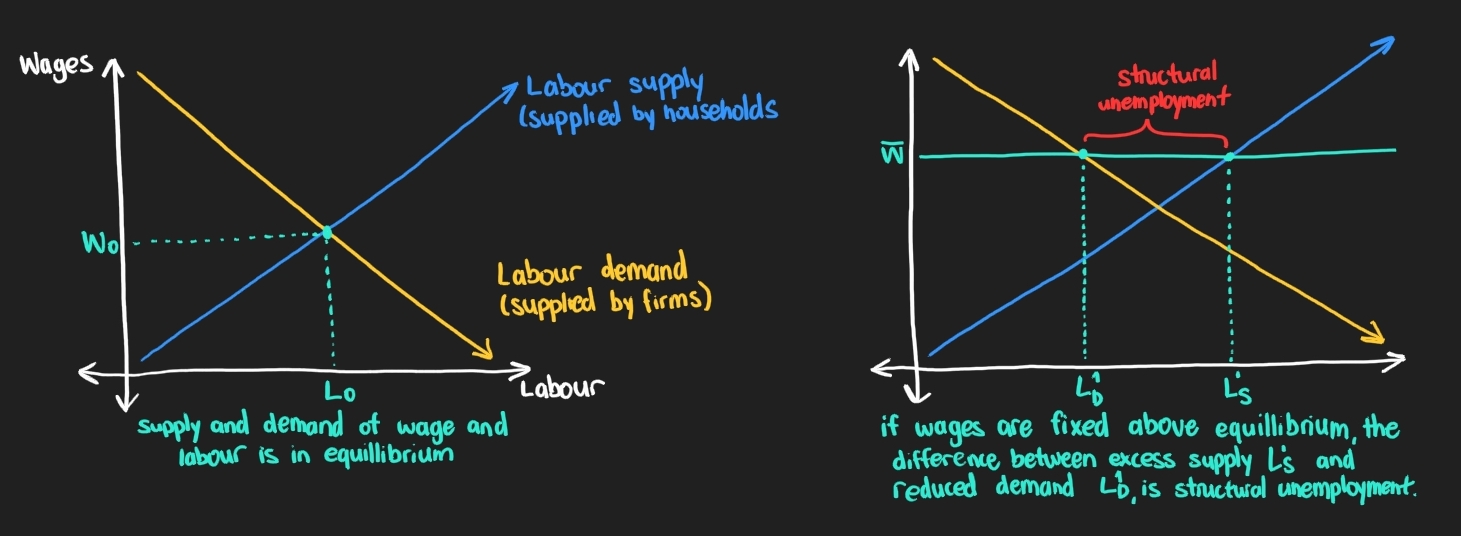 Wages
Labour supply
(supplied by households
W₀
Labour demand
(supplied by firms)
L₀
Labour
supply and demand of wage and
labour is in equillibrium
structural
unemployment
W̅
L¹D
L¹S
if wages are fixed above equillibrium, the
difference between excess supply L¹S and
reduced demand L¹D, is structural unemployment.